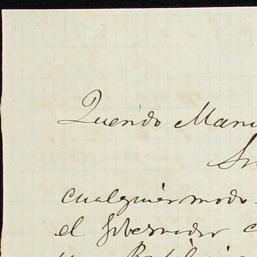 Querido Manu
Su
cualquier modo
el gobernador c